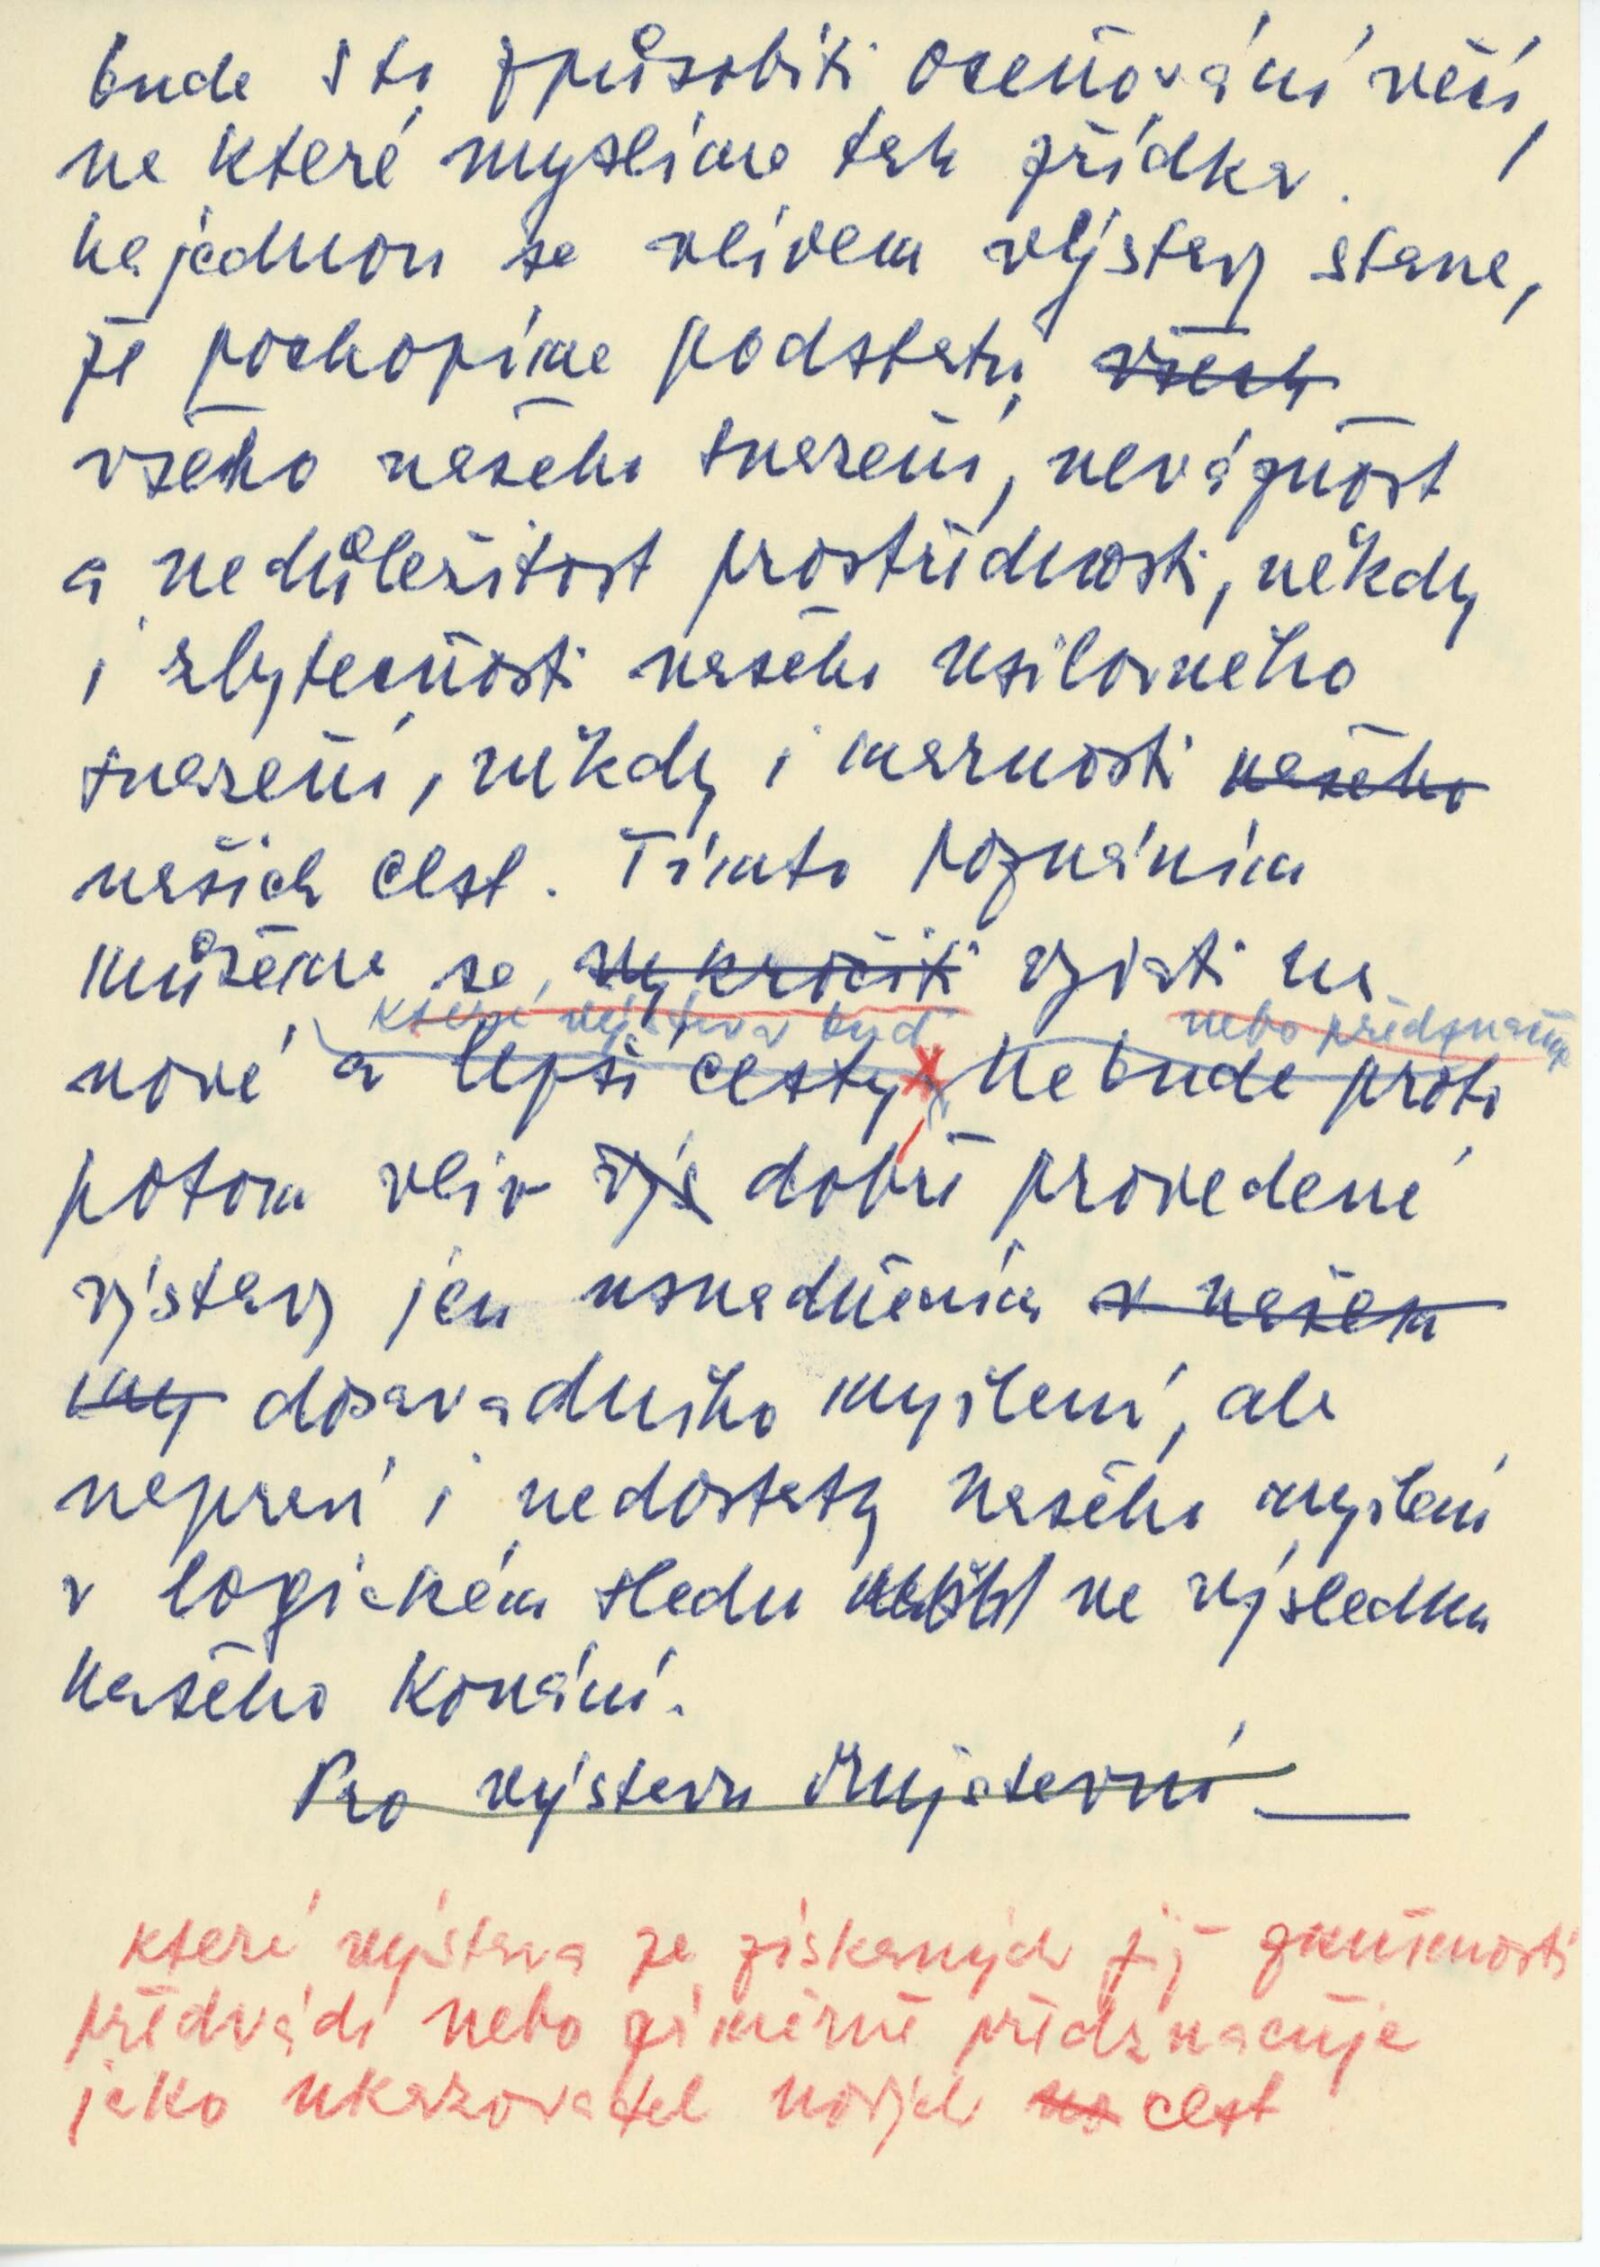 bude s to způsobiti oceňování věcí,
na které myslíme tak zřídka.
Najednou se vlivem výstavy stane,
že pochopíme podstatu všech
všeho našeho snažení, nevážnost
a nedůležitost prostřednosti, někdy
i zbytečnosti našeho usilovného
snažení, někdy i marnosti našeho
našich cest. Tímto poznáním
můžeme se vykročiti vžiti na
které výstava buď nebo předznačuje
nové a lepší cesty. Nebude proto
potom vliv dobře provedené
výstavy jen usnadněním v našem
my dosavadního myšlení, ale
napraví i nedostatky našeho myšlení
v logickém sledu ve výsledku
našeho konání.
Pro výstavu
které výstava ze získaných jí zkušeností
předvádí nebo záměrně předznačuje
jako ukazovatel nových cest